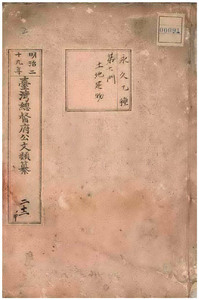 永久乙種
第六門
土地家屋
明治二十九年
臺灣總督府公文類纂
二十一